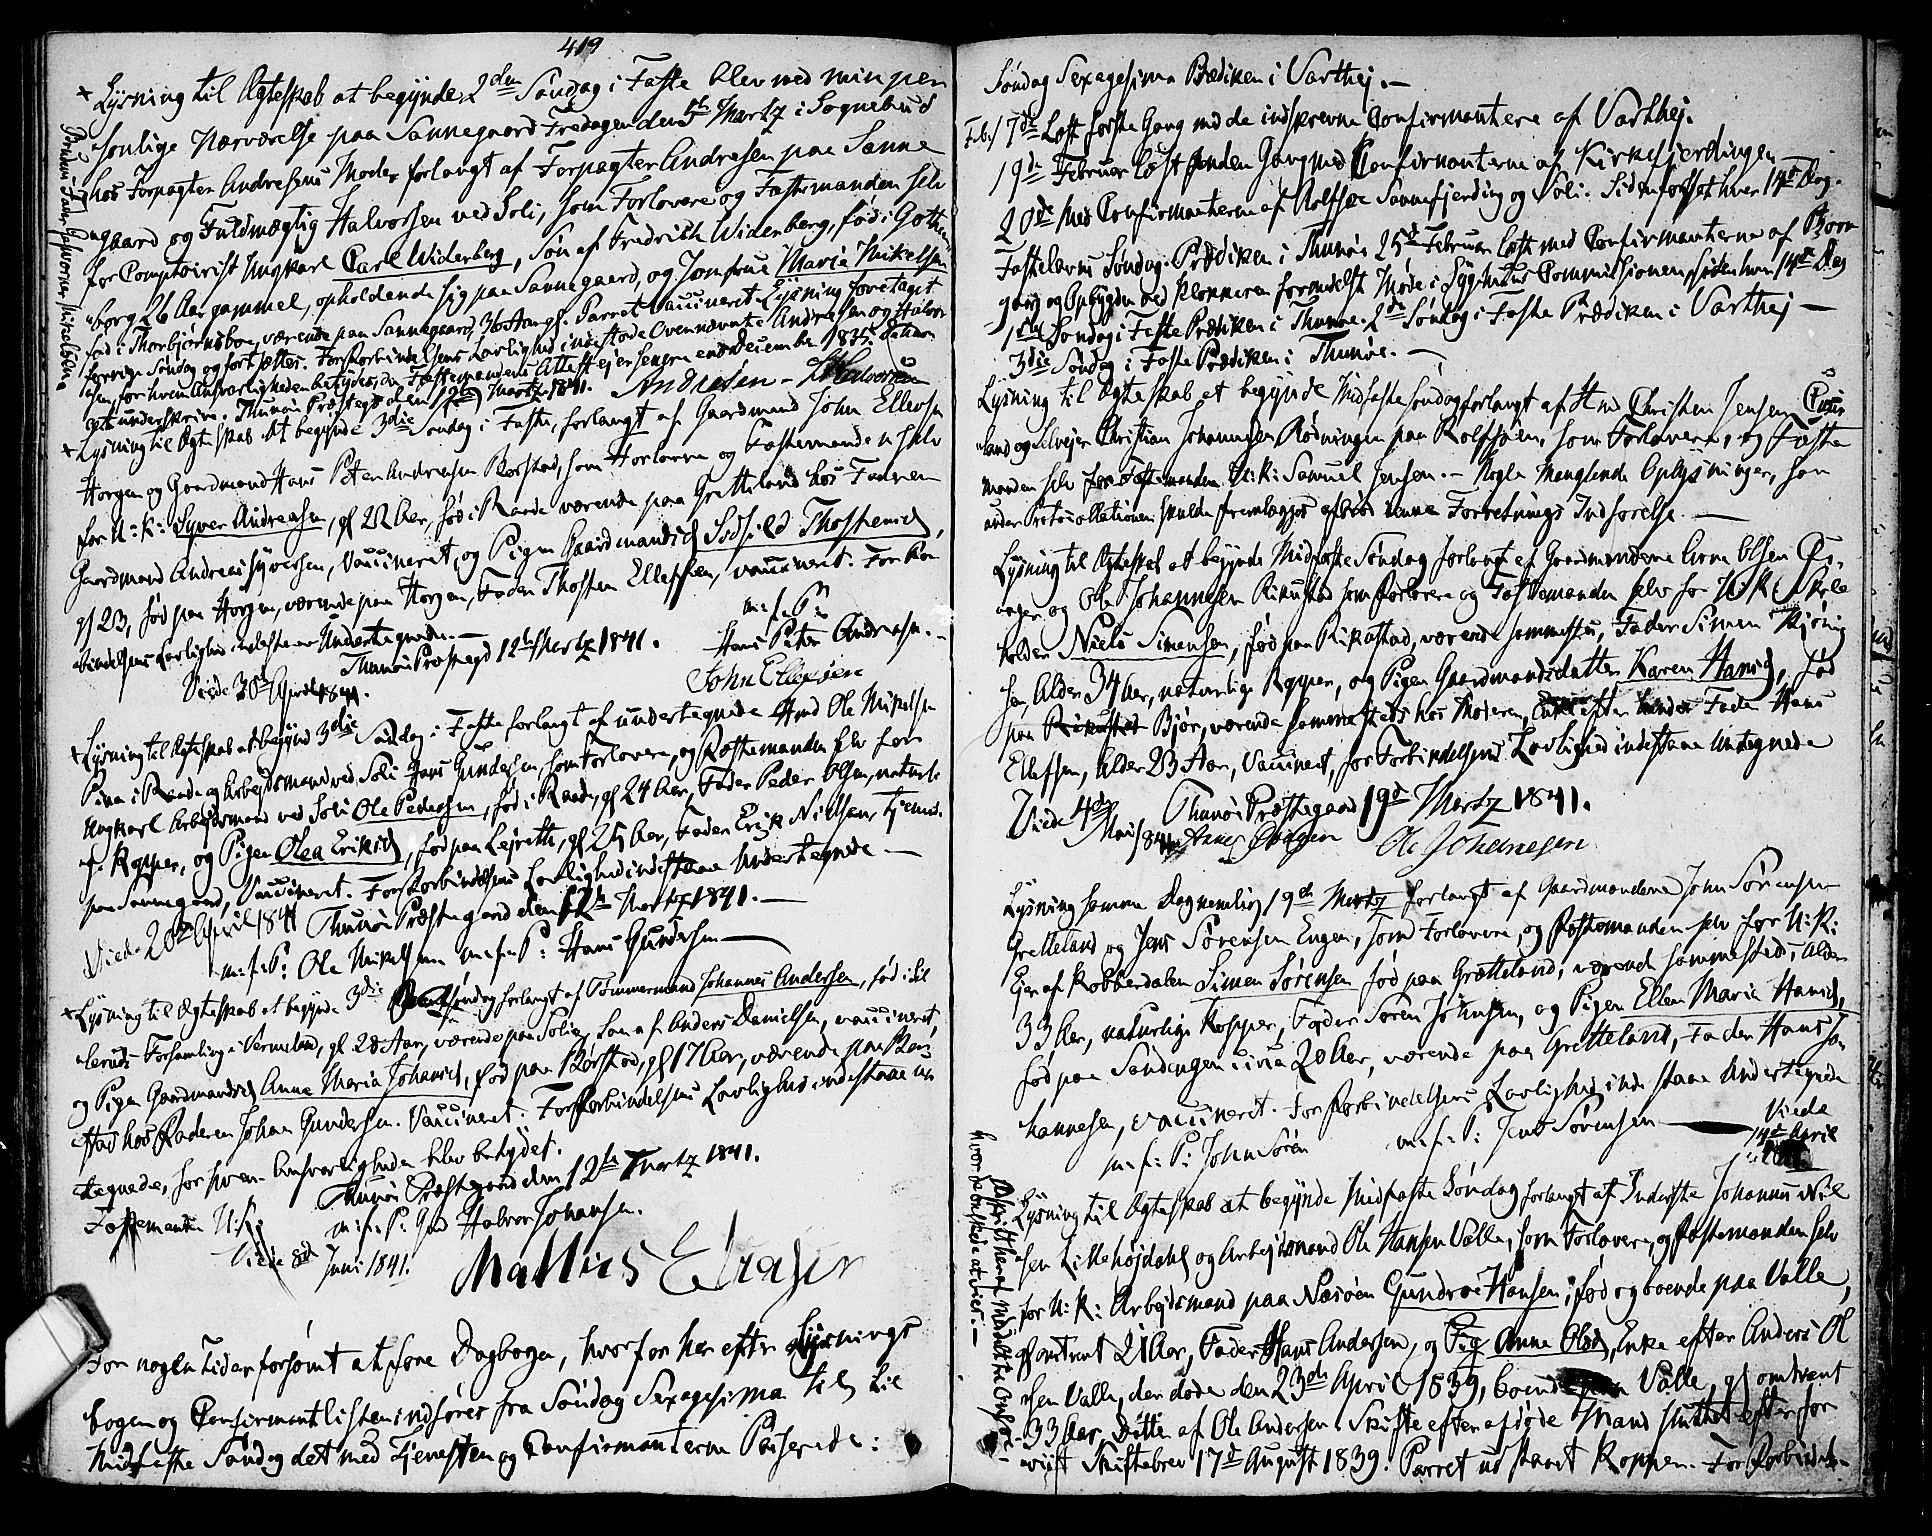 419
Lysning til Ægteskab at begynde 2den Søndag i Faste blev ved min per
sonlige Nærværelse paa Sannegaard Fredagen den 5te Martz i Sognebud
hos Forpagter Andresens Moder forlangt af Forpagter Andresen paa Sanne
gaard og Fuldmægtig Halvorsen ved Soli, som Forlovere og Fæstemanden selv
for Comptoirist Ungkarl Carl Widerberg, Søn af Fredrik Widerberg, fød i Gothen
borg 26 Aar gammel, opholdende sig paa Sannegaard, og Jomfrue Maria Mikelsen
fød i Thorbjørnsboe, værende paa Sannegaard, 36 Aar gl. Parret Vaccineret Lysning foretaget
forrige Søndag og fortsættes. For Forbindelsens Lovlighed indestode Ovennævnte Andresen og Halvor
sen, for hvem Ansvarligheden betydes, Fæstemandens Attest ej er senere end December 1835.
at underskrive. Thunøe Præstegd den 12te Martz 1841. Andresen - Halvorsen
Lysning til Ægteskab at begynde 3die Søndag i Faste, forlangt af Gaardmand John Ellevsen
Horgen og Gaardmand Hans Peter Andreasen Borstad, som Forlovere og Fæstemanden selv
for U: K: Syver Andreasen, gl 22 Aar, fød i Raade værende paa Gretteland hos Faderen
Gaardmand Andreas Syversen, Vaccineret, og Pigen Gaardmandsd Sidsild Thostensd,
gl 23, fød paa Horgen, værende paa Horgen, Fader Thosten Ellefsen, vaccineret. For For
bindelsens Lovlighed indestaae Undertegnede. —
Thunøe Præstegd 12te Martz 1841. m: f: P:
Hans Peter Andreasen. —
Viede 30te April 1841. John Ellefsen
Lysning til Ægteskab at begynde 3die Søndag i Faste forlangt af undertegnede Gmd Ole Mikelsen
i Raade og Arbejdsmand ved Soli Hans Gundersen, som Forlovere, og Fæstemanden selv for
Ungkarl Arbejdsmand ved Soli Ole Pedersen, fød i Raade, gl 24 Aar, Fader Peder Olsen, naturli
ge Kopper, og Pigen Olea Eriksd, fød paa Lejrette, gl 25 Aar, Fader Erik Nielsen, tjenende
paa Sannegaard, Vaccineret. For Forbindelsens Lovlighed indestaae Undertegnede. —
Viede 20de April 1841 Thunøe Præstegaard den 12te Martz 1841. —
m: f: P: Ole Mikelsen m: f: P: Hans Gundersen
Lysning til Ægteskab at begynde 3die Søndag forlangt af Tømmermand Johannes Andersen, fød i Sil
leruds Forsamling i Vermeland, gl 28 Aar, værende paa Solie, Søn af Anders Danielsen, vaccineret,
og Pigen Gaardmandsd Anne Maria Johansd, fød paa Borstad, gl 17 Aar, værende paa Bor
stad hos Faderen Johan Gundersen. Vaccineret: For Forbindelsens Lovlighed indestaae un
tegnede, for hvem Ansvarligheden blev betydet.
Thunøe Præstegaard den 12te Martz 1841.
Fæstemanden m: f: P: Gmd Halvor Johansen.
Viede 8de Juni 1841. Mathies
For nogen Tid er forsømt at føre Dagbogen, hvorfor her efter Lysnings
bogen og Confirmantlisten indføres fra Søndag Sexagesima til
Midfaste Søndag det med Tjenesten og Confirmanterne Passerede:
Søndag Sexagesima Prædiken i Varthej. —
Feb. 17de Læst første Gang med de indskrevne Confirmantere af Varthej.
19de Februar læst anden Gang med Confirmanterne af Kirkefjerdingen
20de med Confirmanterne af Rolfsøe Sannefjerding og Soli. Siden fortsat hver 14de Dag.
Fastelavns Søndag. Prædiken i Thunøe 25de Februar læst med Confirmanterne af Born
gang og Opbygden ved Klokkeren formedelst Møde i Sygehuus Commissionen, siden hver 14de Dag
1ste Søndag i Faste Prædiken i Thunøe. 2de Søndag i Faste Prædiken i Varthej —
3die Søndag i Faste Prædiken i Thunøe. —
Lysning til Ægteskab at begynde Midfaste Søndag forlangt af Hmd Christen Jensen
land og Selvejer Christian Johannesen Rødningen paa Rolfsøen, som Forlovere, og Fæste
manden selv for Fæstemanden U: K: Samuel Jensen. — Nogle manglende Oplysninger, som
under Protocollationen skulde fremlægges afbrød denne Forretnings Indførelse. —
Lysning til Ægteskab at begynde Midfaste Søndag forlangt af Gaardmændene Arne Olsen
og Ole Johannesen Rikustad som Forlovere og Fæstemanden selv for U: K: Skole
holder Niels Simensen, fød paa Rikustad, værende sammesteds, Fader Simen
sen, Alder 34 Aar, naturlige Kopper, og Pigen Gaardmandsdatter Karen Hansd, fød
paa Bjør, værende sammesteds hos Moderen, Enke efter Fader Hans
Ellefsen, Alder 23 Aar, Vaccineret, for Forbindelsens Lovlighed indestaae Undtegnede
Viede 4de Mai 1841 Thunøe Præstegaard 19de Martz 1841.
Ole Johanesen
Lysning samme Dag nemlig 19de Martz forlangt af Gaardmændene John Sørensen
Gretteland og Jens Sørensen Engen, som Forlovere, og Fæstemanden selv for U: K:
Ejer af Kobberdalen Simen Sørensen fød paa Grætteland, værende sammesteds, Alder
33 Aar, naturlige Kopper, Fader Søren Johnsen, og Pigen Ellen Maria Hansd,
fød paa Sandengen circa 20 Aar, værende paa Gretteland, Fader Hans Jo
hannesen, vaccineret. For Forbindelsens Lovlighed indestaae Undertegnede
m: f: P: John Sørensen m: f: P: Jens Sørensen — Viede
14de April
Lysning til Ægteskab at begynde Midfaste Søndag forlangt af Inderste Johannes Niel
sen Lillehøjdahl og Arbejdsmand Ole Hansen Valle, som Forlovere, og Fæstemanden selv
for U: K: Arbejdsmand paa Næsøen Gundroe Hansen, fød og boende paa Valle,
gl omtrent 21 Aar, Fader Hans Andersen, og Pig Anne Olsd, Enke efter Anders Ol
sen Valle, der døde den 23de April 1839, boende Valle, gl omtrent
33 Aar, Dotter af Ole Andersen. Skifte efter afdøde Mand sluttet efter fore
viist Skiftebrev 17de August 1839. Parret udstaaet Kopper. For Forbindel-
hvor he bør skede at vies. —